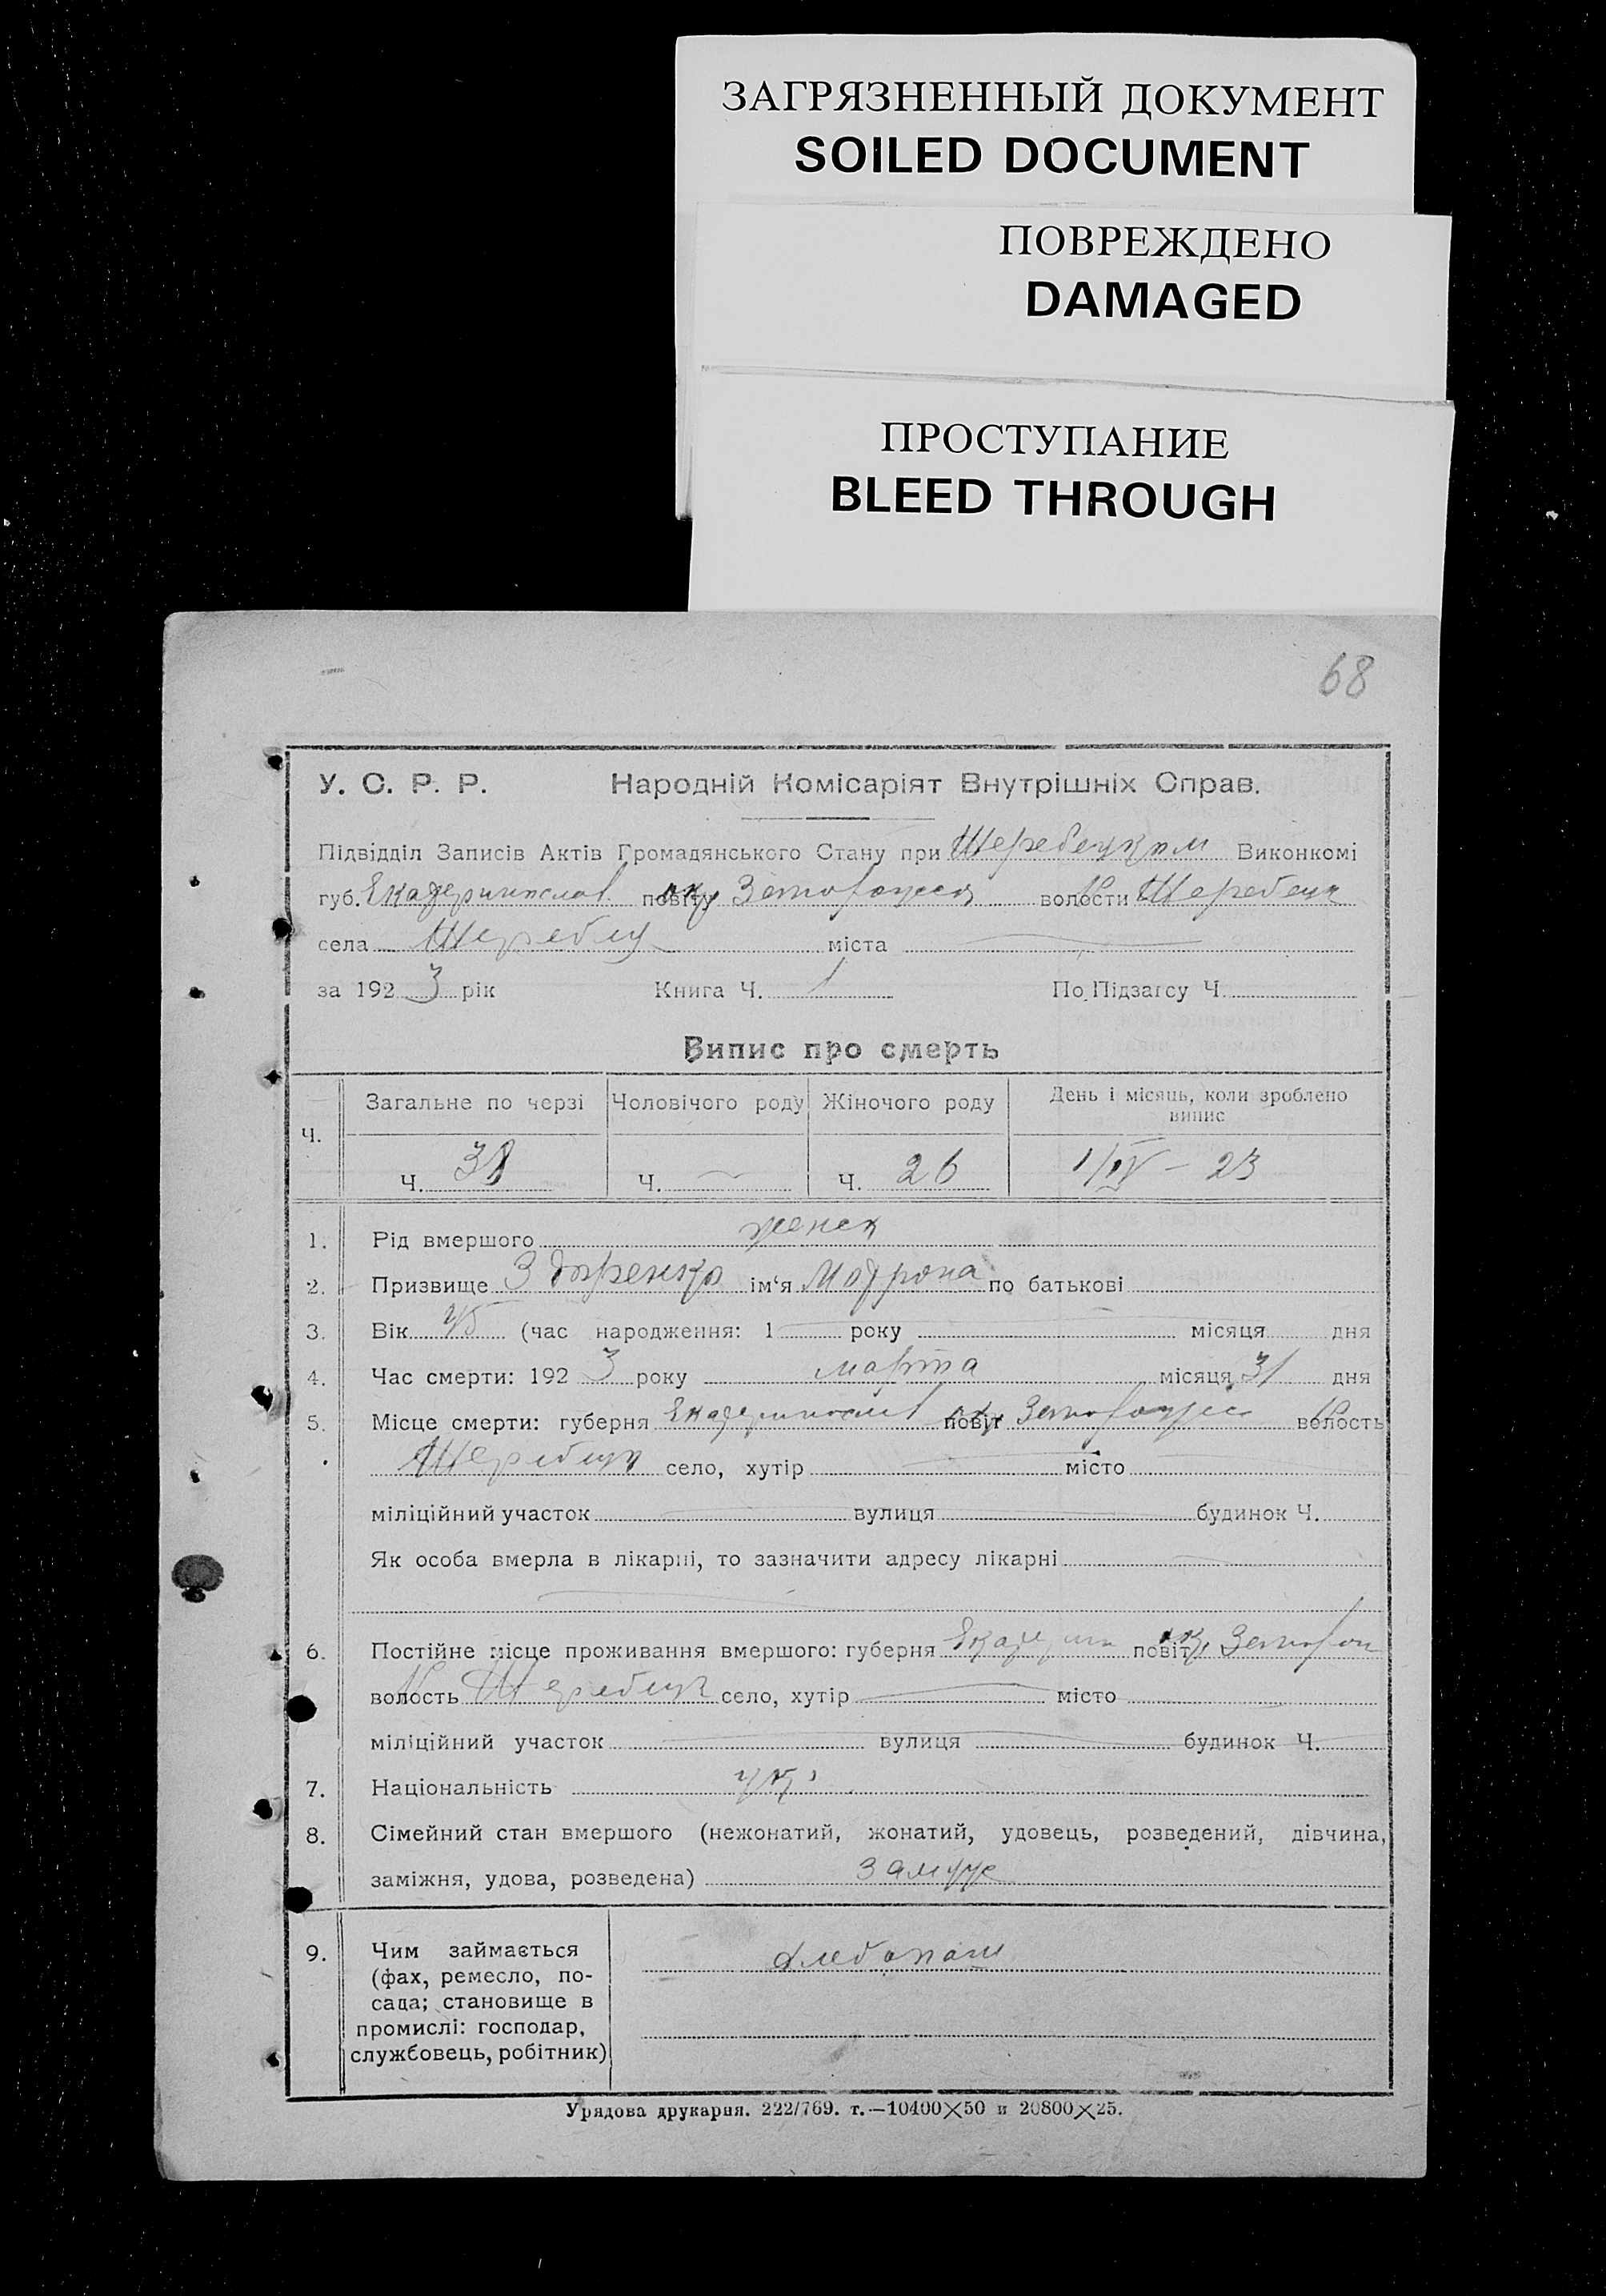 ЗАГРЯЗНЕННЫЙ ДОКУМЕНТ
SOILED DOCUMENT
ПОВРЕЖДЕНО
DAMAGED
ПРОСТУПАНИЕ
BLEED THROUGH
68
У. С. Р. Р. Народній Комісаріят Внутрішніх Справ.
Підвідділ Записів Актів Громадянського Стану при Виконкомі
губ. Екатеринослав повіту окр волости
села міста
за 1923 рік Книга Ч. 1 По Підзагсу Ч.
Випис про смерть
Ч. Загальне по черзі Чоловічого роду Жіночого роду День і місяць, коли зроблено випис
Ч. 38 Ч. — Ч. 26 1/IV – 23
1. Рід вмершого женск
2. Призвище ім‘я Мотрона по батькові
3. Вік (час народження: 1 року місяця дня
4. Час смерти: 1923 року марта місяця 31 дня
5. Місце смерти: губерня Екатеринослав повіт окр волость
село, хутір місто
міліційний участок вулиця будинок Ч.
Як особа вмерла в лікарні, то зазначити адресу лікарні
6. Постійне місце проживання вмершого: губерня Екатерин повіт окр
волость село, хутір місто
міліційний участок вулиця будинок Ч.
7. Національність укр
8. Сімейний стан вмершого (нежонатий, жонатий, удовець, розведений, дівчина,
заміжня, удова, розведена) замуж
9. Чим займається хлебопаш
(фах, ремесло, по-
сада; становище в
промислі: господар,
службовець, робітник)
Урядова друкарня. 222/769. т.—10400×50 и 20800×25.